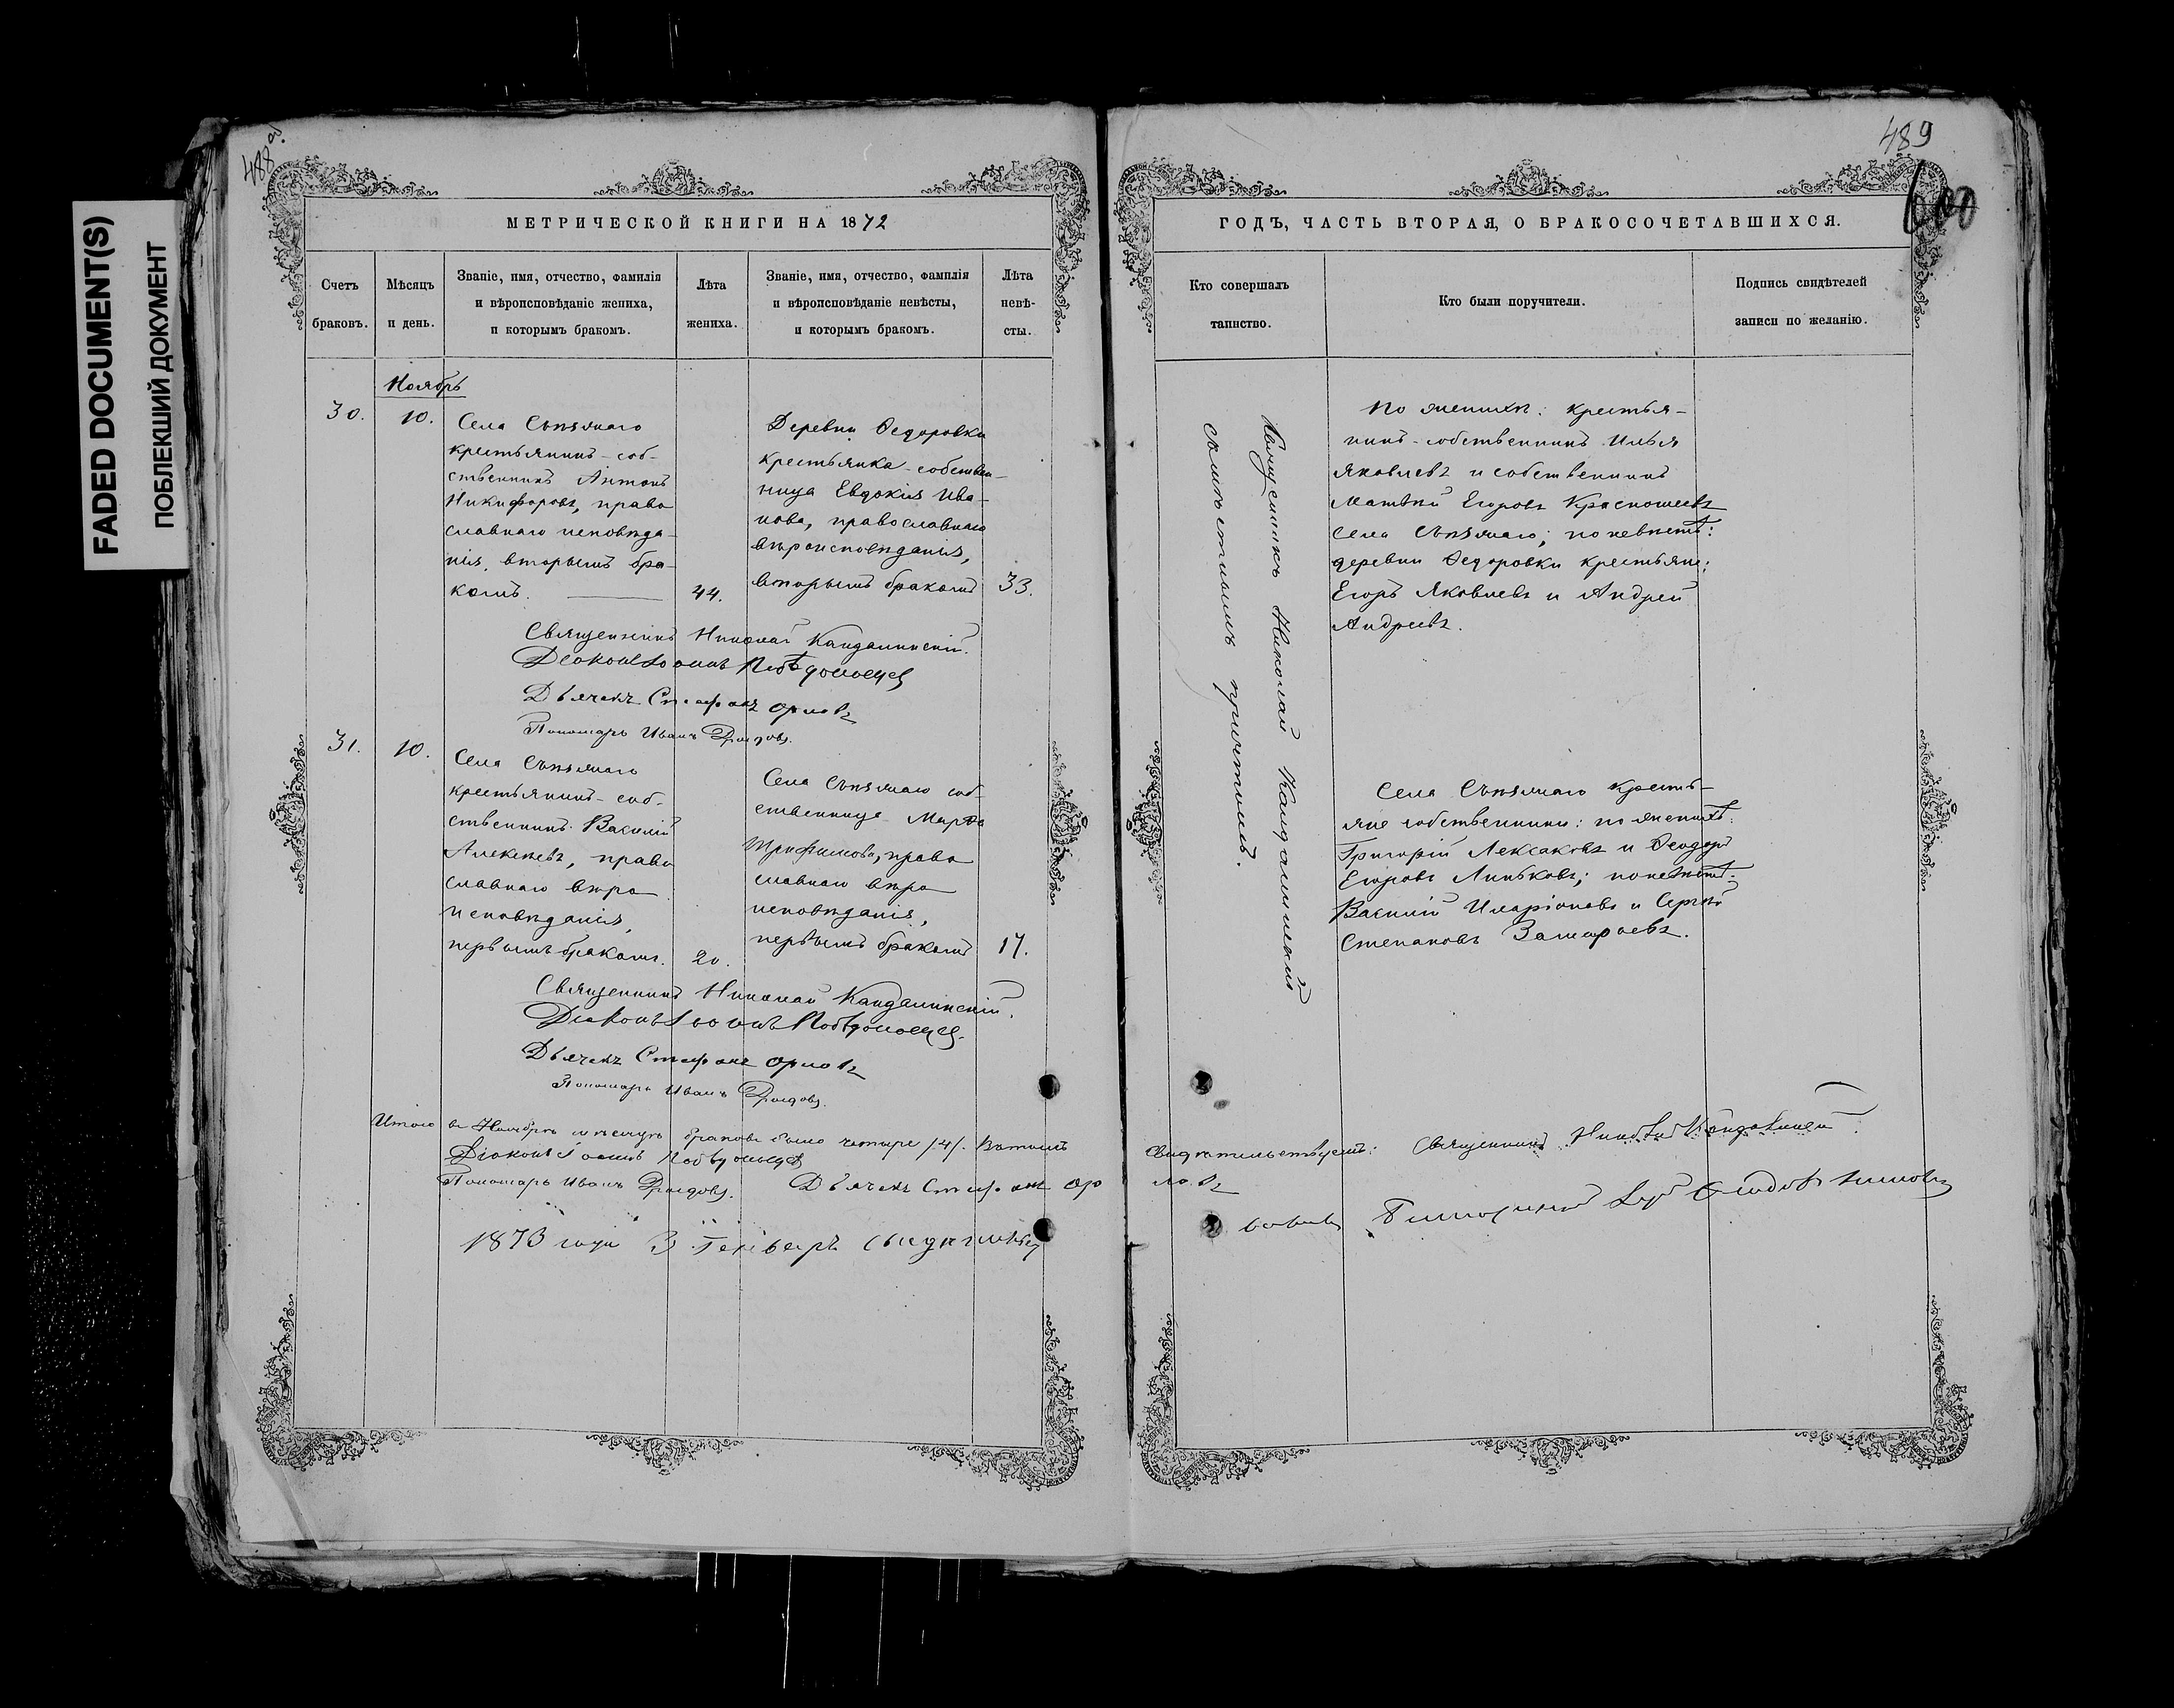 FADED DOCUMENT(S)
ПОБЛЕКШИЙ ДОКУМЕНТ
488 об.
МЕТРИЧЕСКОЙ КНИГИ НА 1872
Счетъ
браковъ.
Мѣсяцъ
и день.
Званіе, имя, отчество, фамилія
и вѣроисповѣданіе жениха,
и которымъ бракомъ.
Лѣта
жениха.
Званіе, имя, отчество, фамилія
и вѣроисповѣданіе невѣсты,
и которымъ бракомъ.
Лѣта
невѣ-
сты.
Ноябрь
30.
10.
Села Съѣзжаго
крестьянинъ-соб-
ственникъ Антонъ
Никифоровъ, право
славнаго исповѣда-
нія, вторымъ бра-
комъ.
44.
Деревни Ѳедоровки
крестьянка-собствен-
ница Евдокія Ива-
нова, православнаго
вѣроисповѣданія,
вторымъ бракомъ
33.
Священникъ Николай Кандалинскій.
Діаконъ Іоаннъ Побѣдоносцев
Дьячекъ Стефанъ Орловъ
Пономарь Иванъ Дроздовъ.
31.
10.
Села Съѣзжаго
крестьянинъ-соб-
ственникъ Василій
Алексѣевъ, право
славнаго вѣро
исповѣданія,
первымъ бракомъ.
20.
Села Съѣзжаго соб-
ственница Марѳа
Трифимова, право
славнаго вѣро
исповѣданія,
первымъ бракомъ
17.
Священникъ Николай Кандалинскій.
Діаконъ Іоаннъ Побѣдоносцев.
Дьячекъ Стефанъ Орловъ
Пономарь Иванъ Дроздовъ.
Итого въ Ноябрѣ мѣсяцѣ браковъ было четыре /4/. Въ томъ
Діаконъ Іоаннъ Побѣдоносцев
Пономарь Иванъ Дроздовъ. Дьячекъ Стефанъ Ор
1873 года 3 Генваря свидѣтельст
489
ГОДЪ, ЧАСТЬ ВТОРАЯ, О БРАКОСОЧЕТАВШИХСЯ.
Кто совершалъ
таинство.
Кто были поручители.
Подпись свидѣтелей
записи по желанію.
Священникъ Николай Кандалинскій
съ мѣстнымъ причтомъ.
По женихѣ: крестья-
нинъ-собственникъ Илья
Яковлевъ и собственникъ
Матвѣй Егоровъ Красношеевъ
села Съѣзжаго; по невѣстѣ:
деревни Ѳедоровки крестьяне:
Егоръ Яковлевъ и Андрей
Андреевъ.
Села Съѣзжаго кресть-
яне собственники: по женихѣ:
Григорій Лексаковъ и Ѳеодоръ
Егоровъ Линьковъ; по невѣстѣ:
Василій Иларіоновъ и Сергѣй
Степановъ
свидѣтельствуемъ: Священникъ Николай Кандалинскій.
ловъ